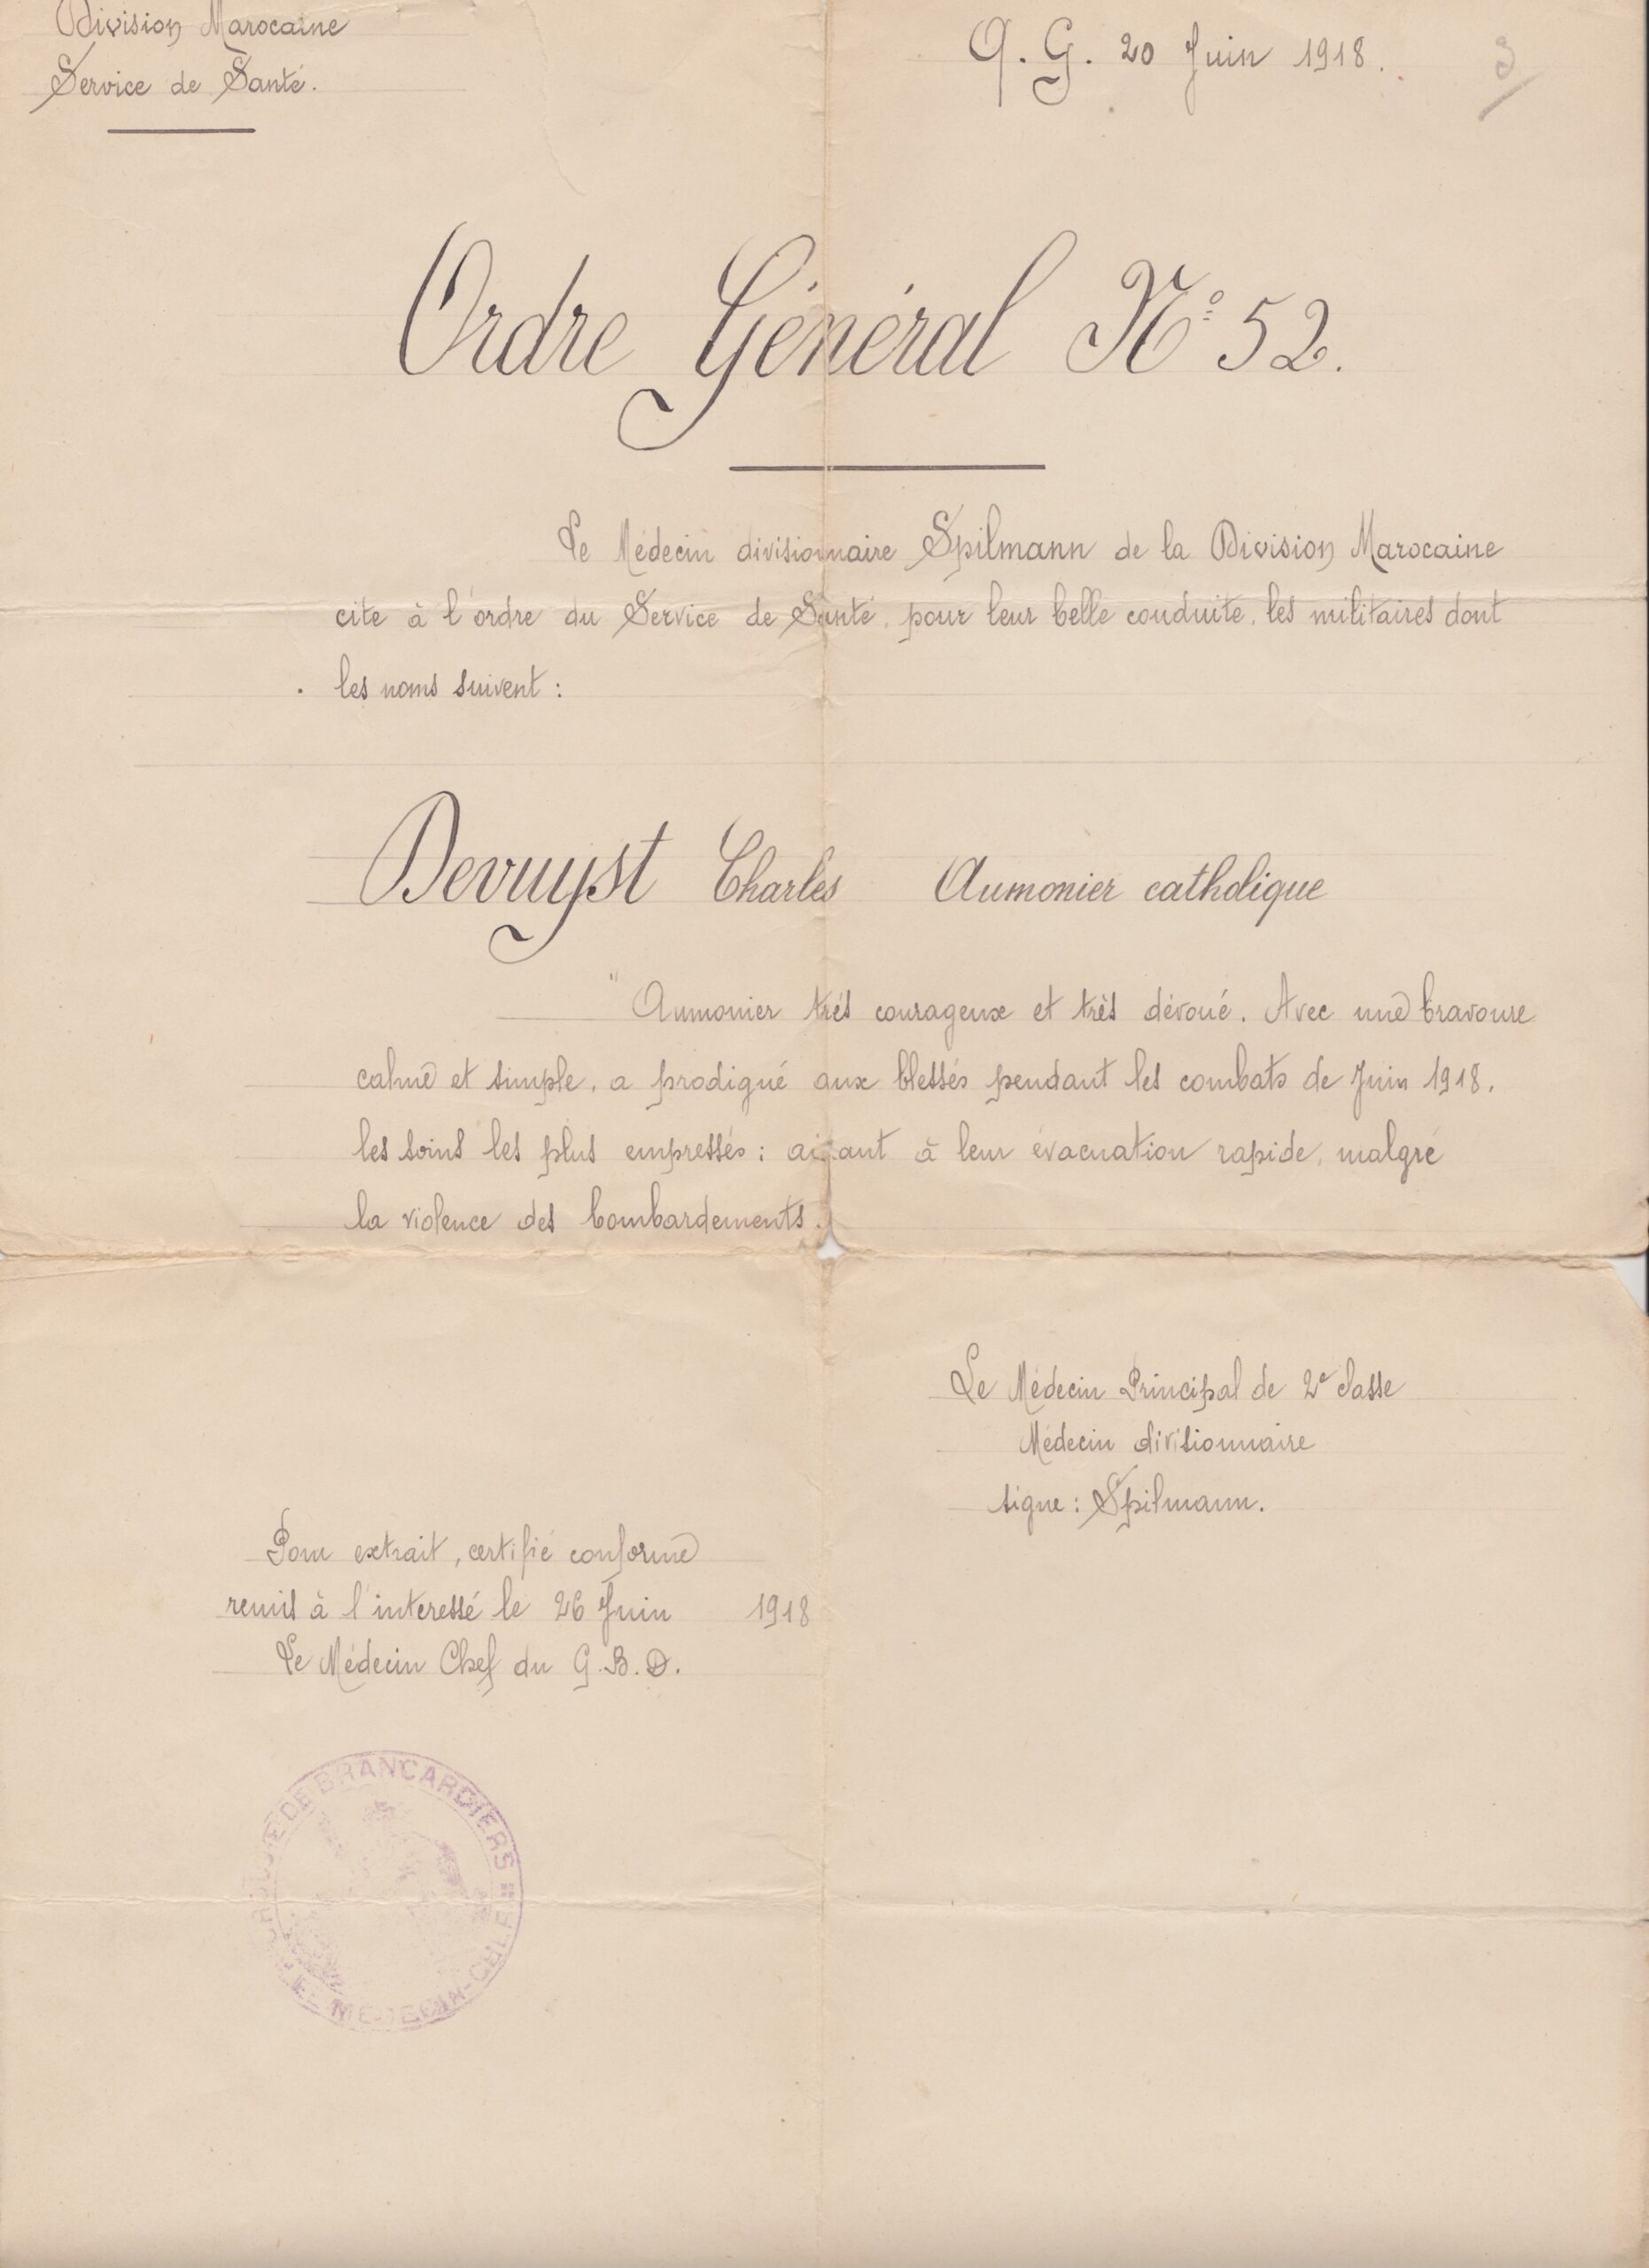 Division Marocaine
Service de Santé.
Q. G. 20 Juin 1918.
3
Ordre Général N° 52.
Le Médecin divisionnaire Spilmann de la Division Marocaine
cite à l'ordre du Service de Santé, pour leur belle conduite, les militaires dont
les noms suivent :
Devuyst Charles Aumonier catholique
" Aumonier très courageux et très dévoué. Avec une bravoure
calme et simple, a prodigué aux blessés pendant les combats de Juin 1918,
les soins les plus empressés ; aidant à leur évacuation rapide, malgré
la violence des bombardements.
Le Médecin Principal de 2e classe
Médecin divisionnaire
signe : Spilmann.
Pour extrait, certifié conforme
remis à l'interessé le 26 Juin 1918
Le Médecin Chef du G.B.D.
DE BRANCARDIERS
MEDECIN-CHEF